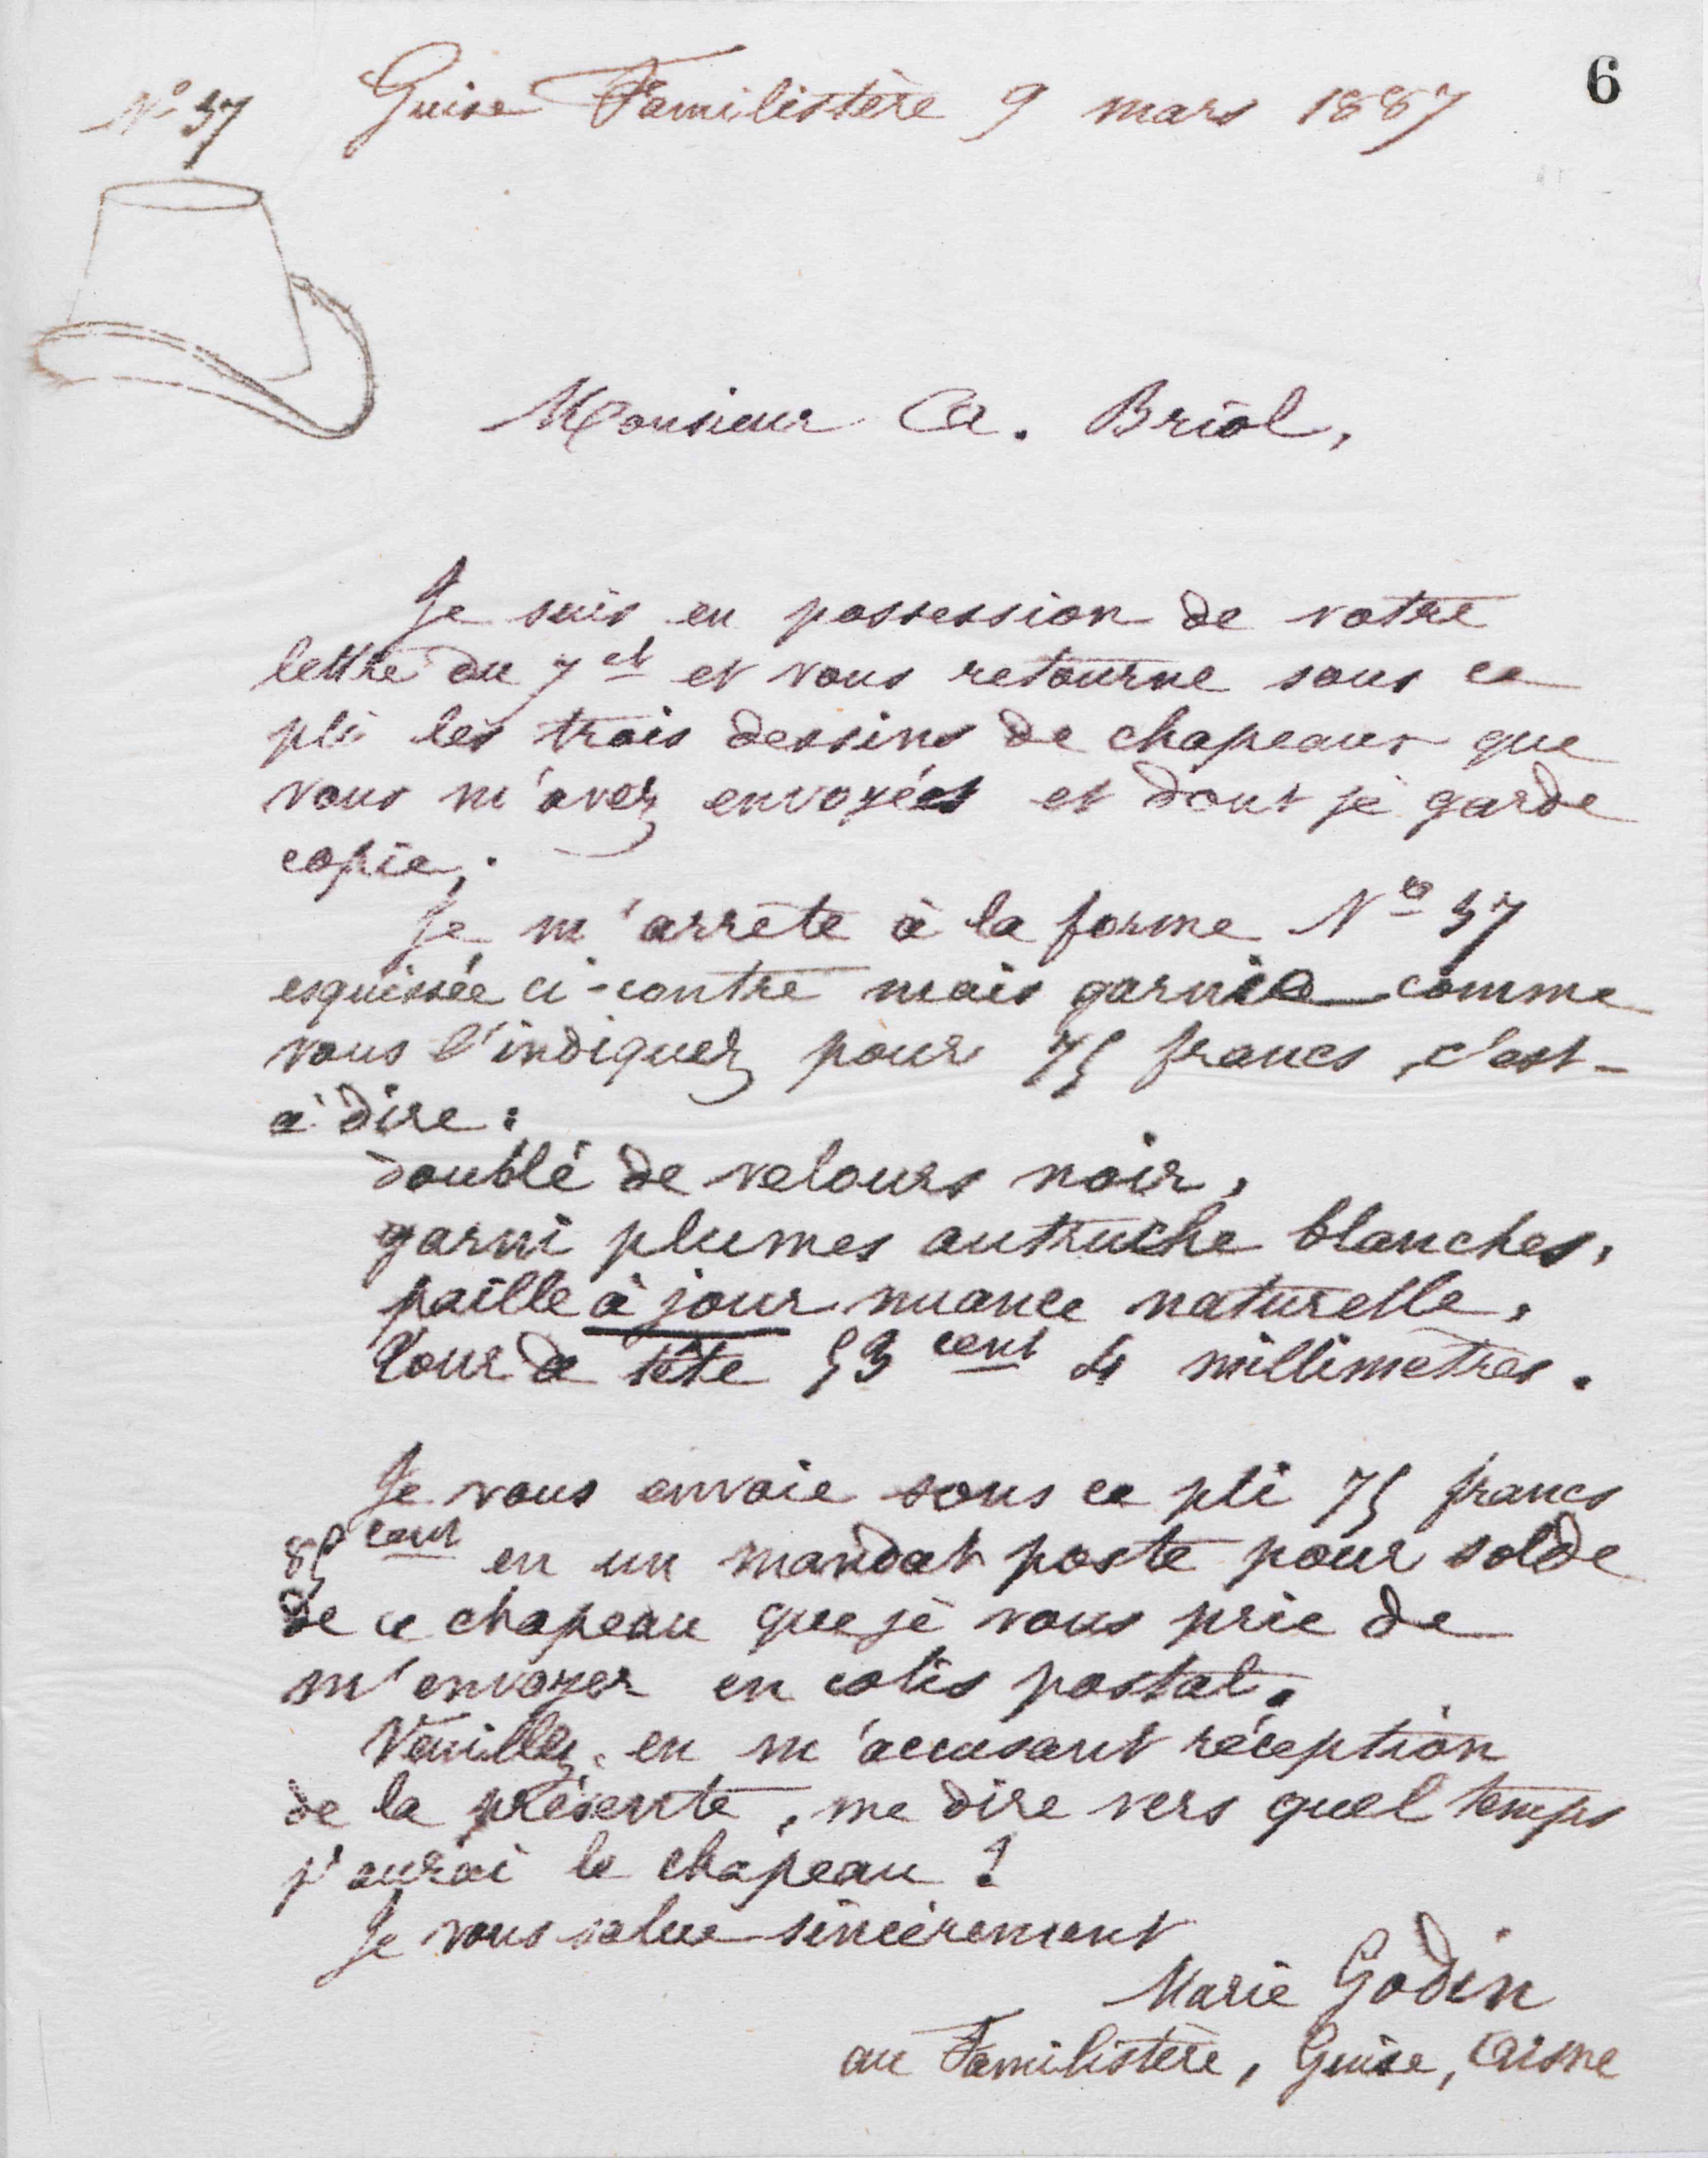 6
N° 37 Guise Familistère 9 mars 1887
Monsieur A. Briol,
Je suis en possession de votre
lettre du 7 ct et vous retourne sous ce
pli les trois dessins de chapeaux que
vous m'avez envoyés et dont je garde
copie.
Je m'arrête à la forme N° 37
esquissée ci-contre mais garnie comme
vous l'indiquez pour 75 francs, c'est-
à dire :
doublé de velours noir,
garni plumes autruche blanches,
paille à jour nuance naturelle,
Tour de tête 53 cent 4 millimètres.
Je vous envoie sous ce pli 75 francs
85 cent en un mandat poste pour solde
de ce chapeau que je vous prie de
m'envoyer en colis postal.
Veuillez, en m'accusant réception
de la présente, me dire vers quel temps
j'aurai le chapeau ?
Je vous salue sincèrement
Marie Godin
au Familistère, Guise, Aisne